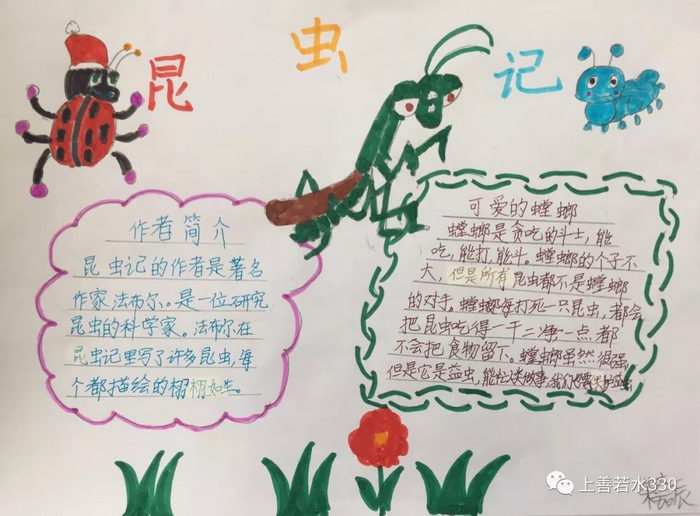 昆虫记
作者简介
昆虫记的作者是著名
作家法布尔。是一位研究
昆虫的科学家。法布尔在
昆虫记里写了许多昆虫,每
个都描绘的栩栩如生。
可爱的螳螂
螳螂是贪吃的斗士,能
吃,能打,能斗。螳螂的个子不
大,但是所有昆虫都不是螳螂
的对手。螳螂每打死一只昆虫,都会
把昆虫吃得一干二净一点都
不会把食物留下。螳螂虽然很强
但是它是益虫,能忙
上善若水330